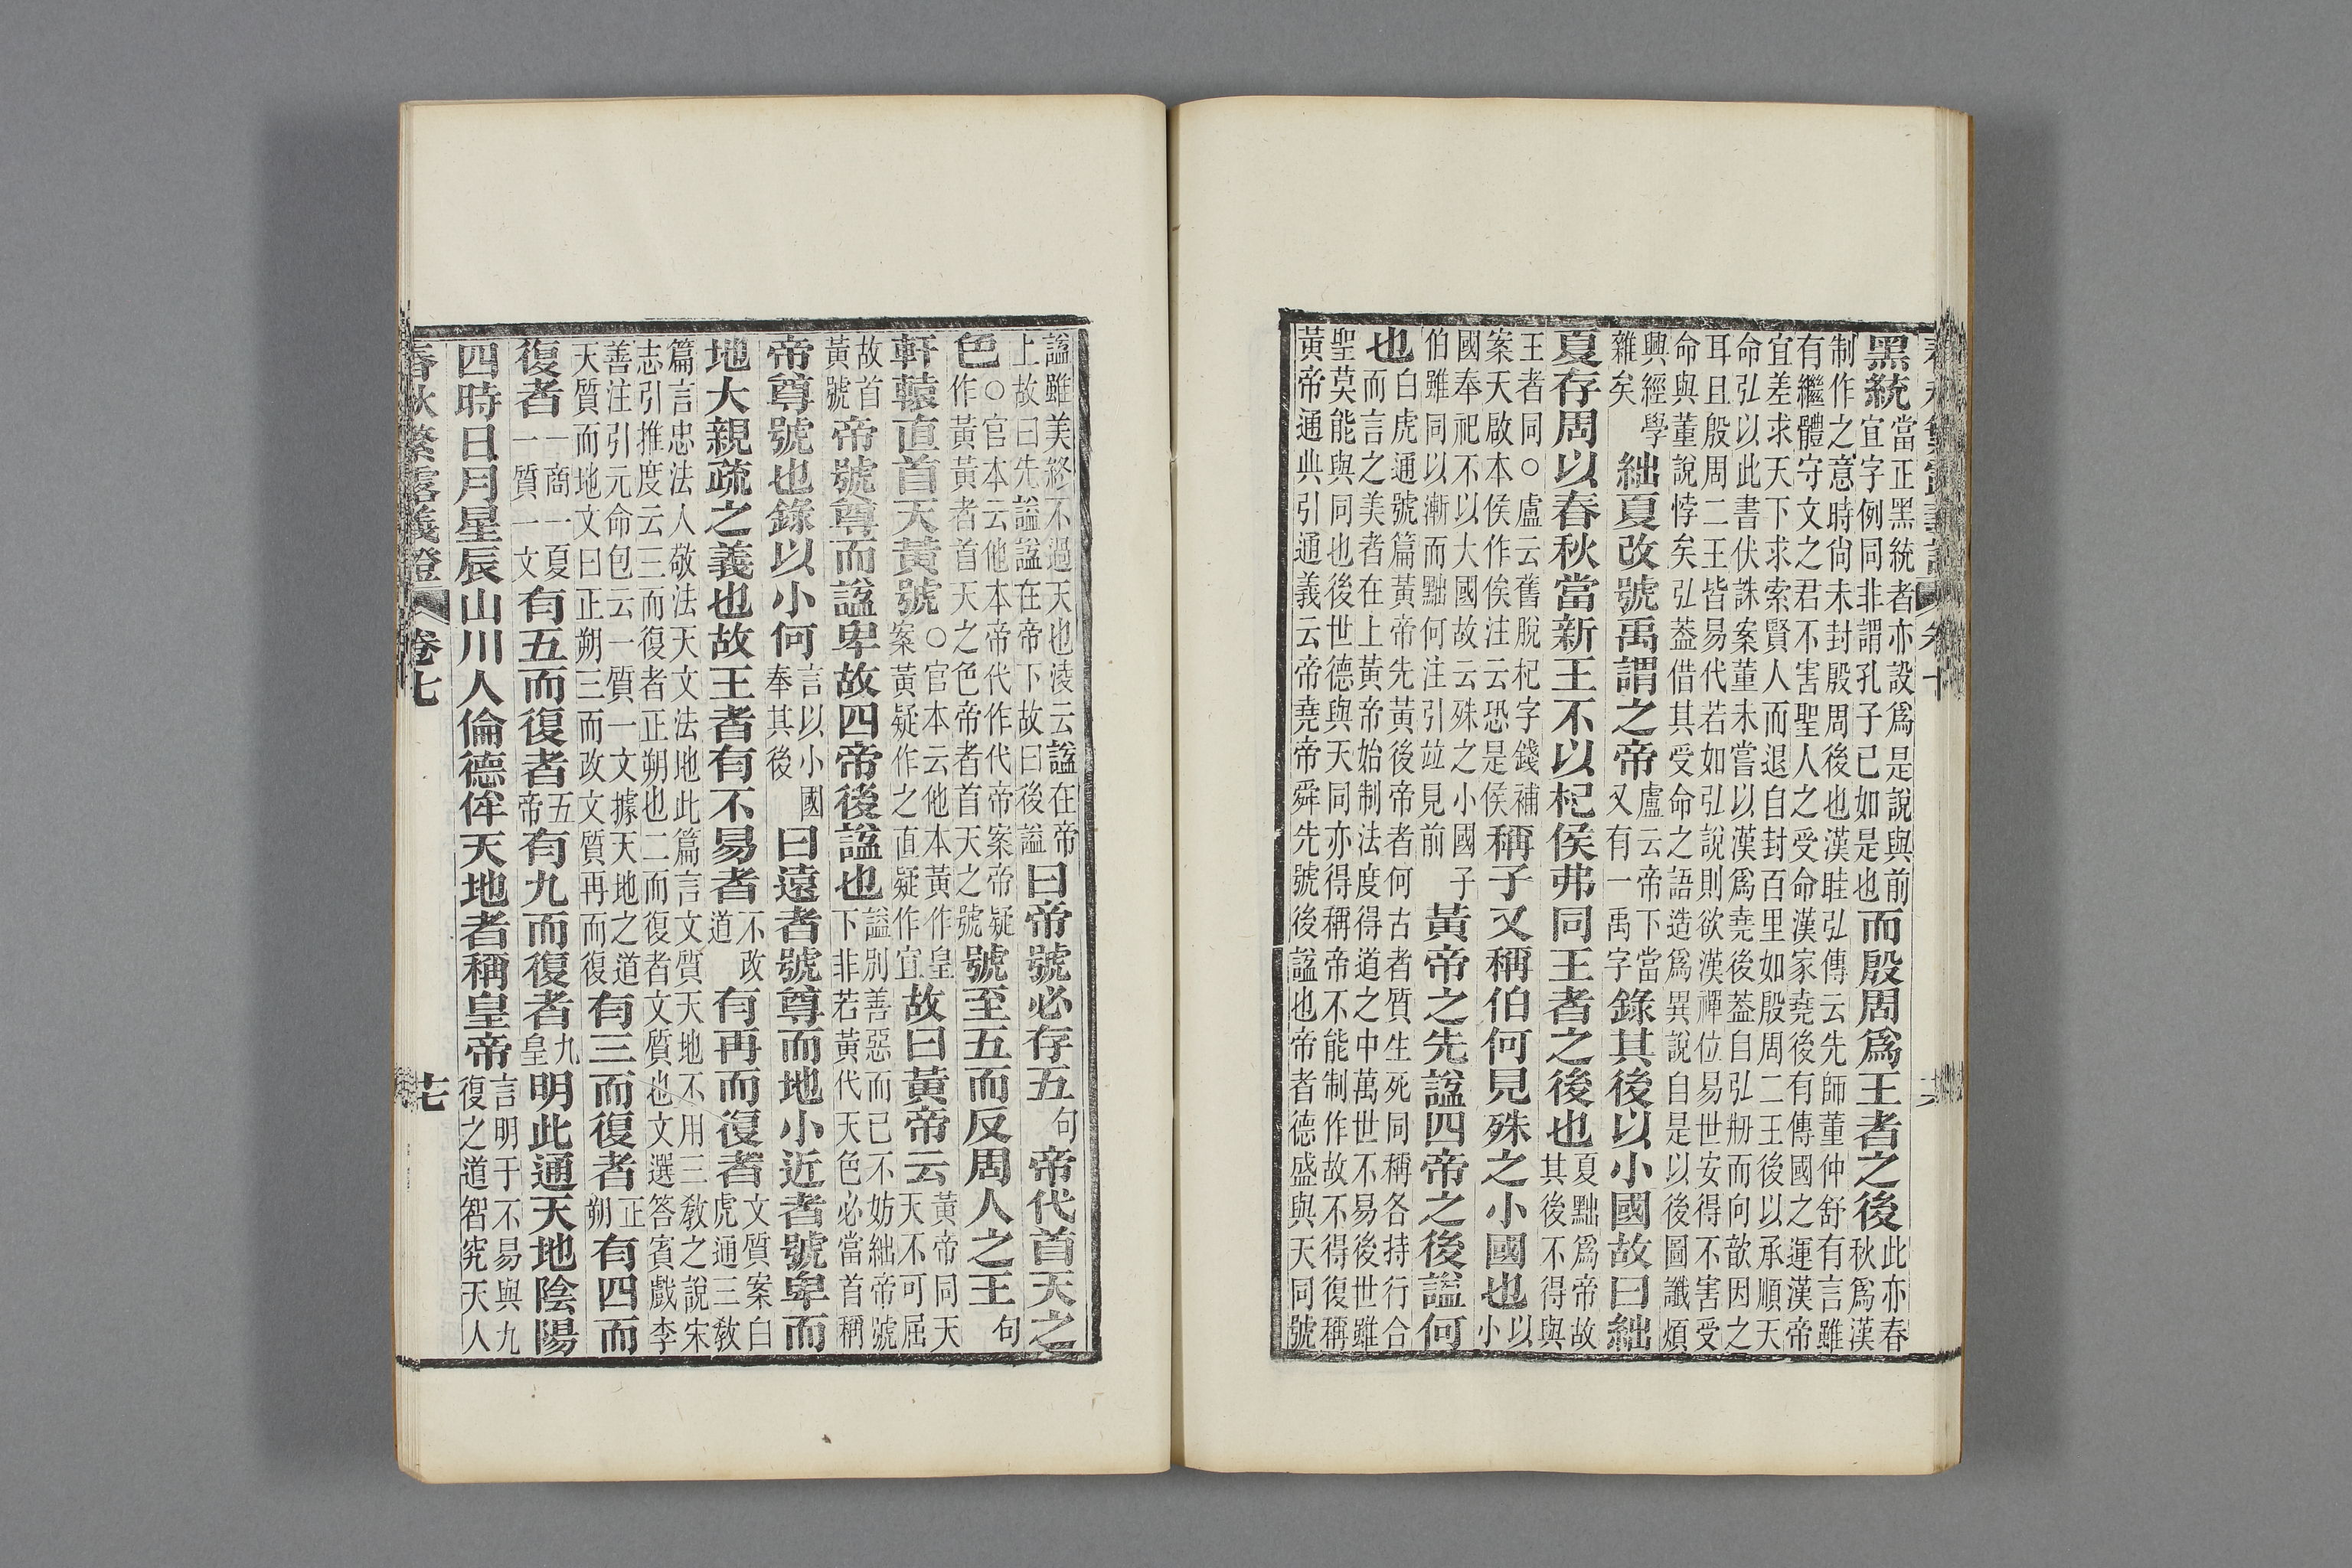 黑統當正黑統者亦設爲是說與前宜字例同非謂孔子已如是也而殷周爲王者之後此亦春秋爲漢
制作之意時尙未封殷周後也漢眭弘傳云先師董仲舒有言雖
有繼體守文之君不害聖人之受命漢家堯後有傳國之運漢帝
宜差求天下求索賢人而退自封百里如殷周二王後以承順天
命弘以此書伏誅案董未嘗以漢爲堯後葢自弘剏而向歆因之
耳且殷周二王皆易代若如弘說則欲漢禪位易世安得不害受
命與董說悖矣弘葢借其受命之語造爲異說自是以後圖讖煩
興經學雜矣絀夏改號禹謂之帝盧云帝下當又有一禹字錄其後以小國故曰絀
夏存周以春秋當新王不以杞侯弗同王者之後也夏黜爲帝故其後不得與
王者同○盧云舊脫杞字錢補案天啟本侯作俟注云恐是侯稱子又稱伯何見殊之小國也以小
國奉祀不以大國故云殊之小國子伯雖同以漸而黜何注引竝見前黃帝之先謚四帝之後謚何
也白虎通號篇黃帝先黃後帝者何古者質生死同稱各持行合而言之美者在上黃帝始制法度得道之中萬世不易後世雖
聖莫能與同也後世德與天同亦得稱帝不能制作故不得復稱
黃帝通典引通義云帝堯帝舜先號後謚也帝者德盛與天同號
謚雖美終不過天也淩云謚在帝上故曰先謚謚在帝下故曰後謚曰帝號必存五句帝代首天之
色○官本云他本帝代作代帝案帝疑作黃黃者首天之色帝者首天之號號至五而反周人之王句
軒轅直首天黃號○官本云他本黃作皇案黃疑作之直疑作宜故曰黃帝云黃帝同天天不可屈
故首黃號帝號尊而謚卑故四帝後謚也謚別善惡而已不妨絀帝號下非若黃代天色必當首稱
帝尊號也錄以小何言以小國奉其後曰遠者號尊而地小近者號卑而
地大親疏之義也故王者有不易者不改道有再而復者文質案白虎通三敎
篇言忠法人敬法天文法地此篇言文質天地不用三敎之說宋
志引推度云三而復者正朔也二而復者文質也文選答賓戲李
善注引元命包云一質一文據天地之道天質而地文曰正朔三而改文質再而復有三而復者正朔有四而
復者一商一夏一質一文有五而復者五帝有九而復者九皇明此通天地陰陽
四時日月星辰山川人倫德侔天地者稱皇帝言明于不易與九復之道智究天人
春秋繁露義證 卷七 十七